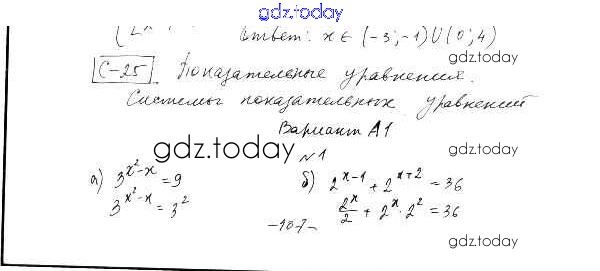 gdz.today
Ответ: x ∈ (-3; -1) ∪ (0; 4)
gdz.today
С-25 Показательные уравнения.
Системы показательных уравнений
Вариант А1
gdz.today
№1
gdz.today
а) 3^{x^2-x} = 9
3^{x^2-x} = 3^2
б) 2^{x-1} + 2^{x+2} = 36
2^x/2 + 2^x · 2^2 = 36
-107-
gdz.today